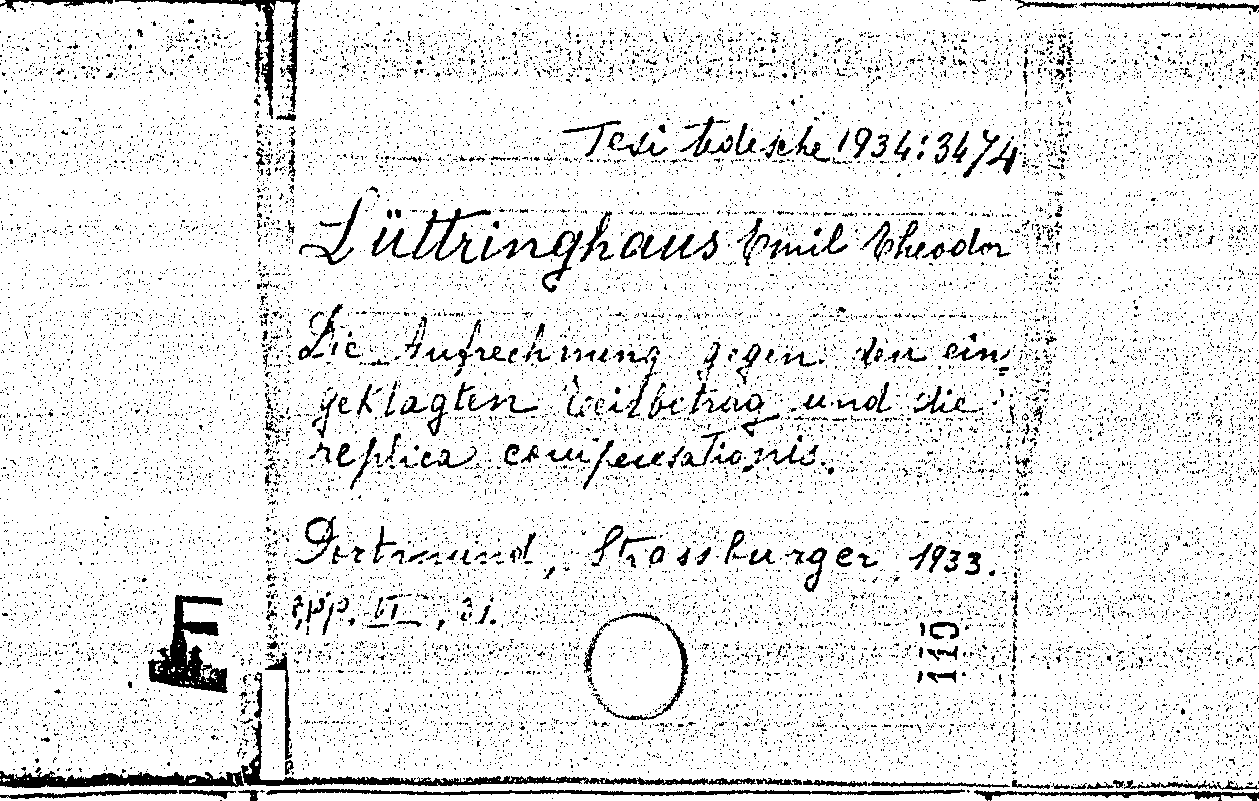 Tesi tedesche 1934:3474
Lüttringhaus Emil Theodor
Die Aufrechnung gegen den ein=
geklagten Teilbetrag und die
replica compensationis.
Dortmund, Strassburger 1933.
pp. VI, 31.
110